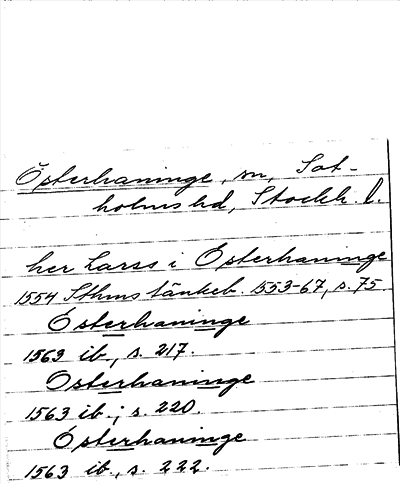 Österhaninge, sn, Sot-
holms hd, Stockh. l.
her Larss i Österhaninge
1554 Sthms tänkeb. 1553-67, s. 75.
Österhaninge
1563 ib., s. 217.
Osterhaninge
1563 ib., s. 220.
Österhaninge
1563 ib., s. 222.